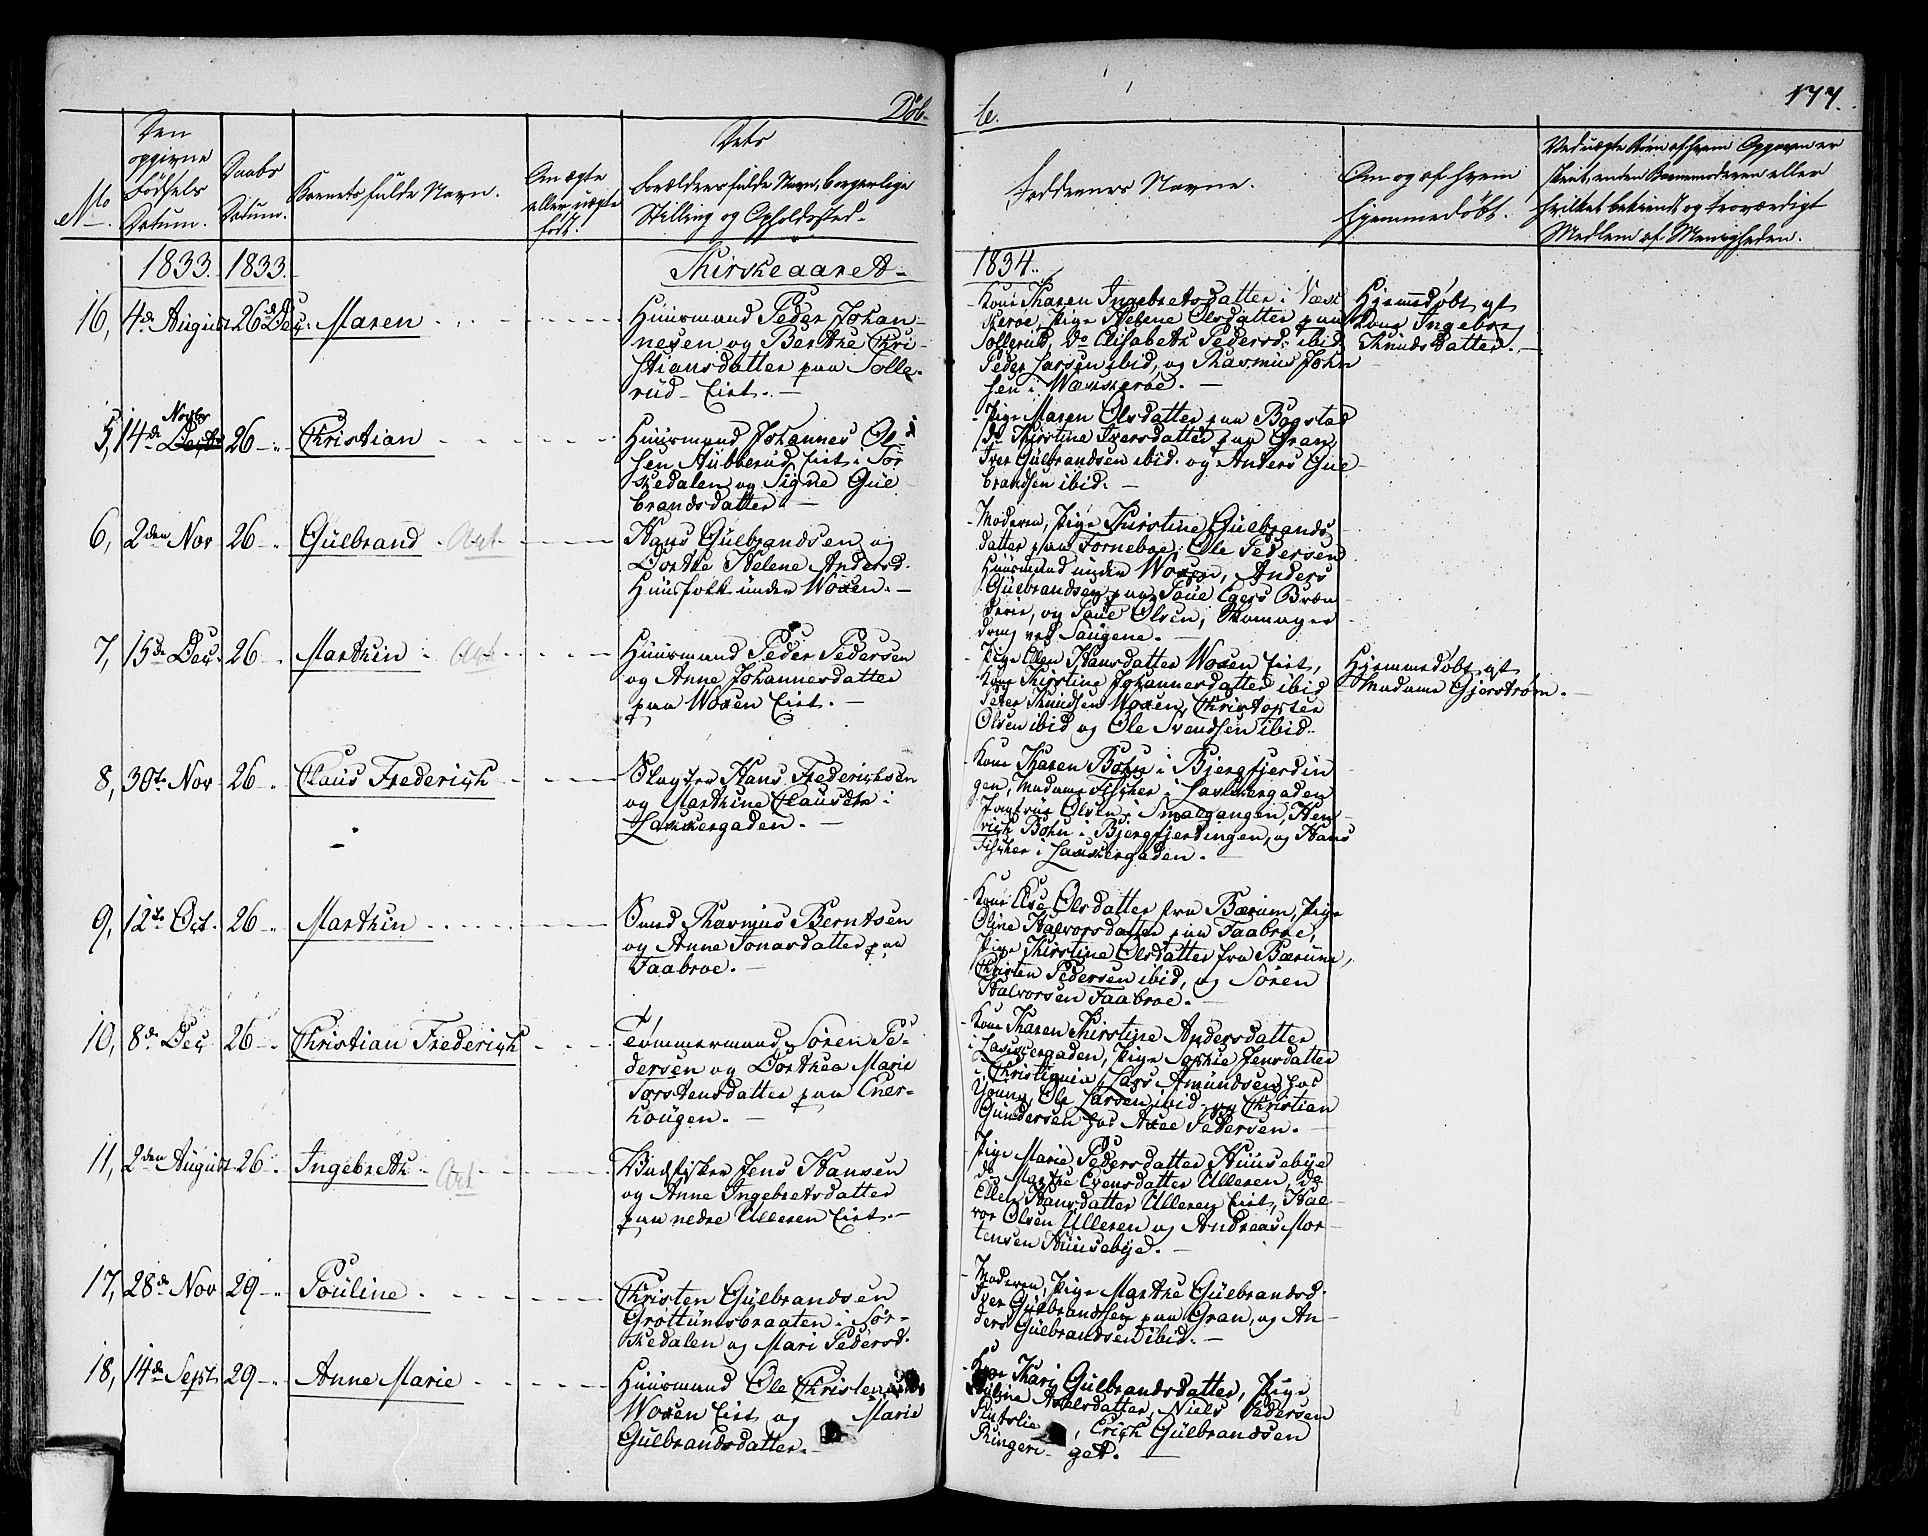 Døb-
te.
177.
No
Den
opgivne
Fødsels
Datum.
Daabs
Datum.
Barnets fulde Navn.
Om ægte
eller uægte
født.
Dets
Forældres fulde Navn, borgerlige
Stilling og Opholdssted.
Faddernes Navne.
Om og af hvem
hjemmedøbt.
Ved uægte Børn af hvem Opgaven er
skeet, enten Barnemoderen eller
hvilket bekiendt og troværdigt
Medlem af Menigheden.
1833. 1833. Kirkeaaret
1834.
16, 4de August 26de Dec. Maren
Huusmand Peder Johan-
nesen og Berthe Chri-
stiansdatter paa Solle-
rud Eiet. —
- Kone Karen Ingebretsdatter i Væk
kerøe, Pige Helene Olsdatter paa
Sollerud, Do Elisabeth Pedersd: ibid
Peder Larsen ibid, og Rasmus John
sen i Wækkerøe. —
Hjemmedøbt af
Kone Ingeborg
Knudsdatter. —
5, 14de Novbr 26 Christian
Huusmand Johannes Ol-
sen Aubberud Eiet i Sør
kedalen og Signe Gul
brandsdatter. —
- Pige Maren Olsdatter paa Bogstad
do Kirstine Iversdatter paa Gran
Iver Gulbrandsen ibid. og Anders Gul-
brandsen ibid. —
6, 2den Nov 26 Gulbrand
Hans Gulbrandsen og
Dorthe Helene Andersd.
Huusfolk under Woxen. —
- Moderen, Pige Kirstine Gulbrands
datter paa Forneboe, Ole Pedersen
Huusmand under Woxen, Anders
Gulbrandsen paa Poul Egers Bræn
derie, og Poul Olsen, Skomager
dreng ved Saugene. —
7, 15de Dec. 26 Marthin
Huusmand Peder Pedersen
og Anne Johannesdatter
paa Woxen Eiet. —
- Pige Olea Hansdatter Woxen Eiet,
Kone Kirstine Johannesdatter ibid
Peter Knudsen Woxen, Christopher
Olsen ibid og Ole Svendsen ibid.
Hjemmedøbt af
Madame Gjerstrøm. —
8, 30te Nov 26 Claus Frederich
Slagter Hans Frederichsen
og Marthine Clausdtr i
Lakkergaden. —
- Kone Karen Bohn i Bjergfjerdin
gen, Madame Fischer i Lakkergaden
Jomfrue Olsen i Smalgangen, Hen
rich Bohn i Bjergfjerdingen, og Hans
Fischer i Lakkergaden. —
9, 12te Oct. 26 Marthin
Smed Rasmus Berntsen
og Anne Jonasdatter paa
Faabroe. —
- Kone Else Olsdatter fra Bærum, Pige
Oline Halvorsdatter paa Faabroe,
Pige Kirstine Olsdatter fra Bærum,
Christen Pedersen ibid, og Søren
Halvorsen Faabroe. —
10, 8de Dec 26 Christian Frederich
Tømmermand Søren Pe-
dersen og Dorthea Marie
Torstensdatter paa Ener-
hougen. —
- Kone Karen Kirstine Andersdatter
i Lakkergaden, Pige Sophie Jensdatter
i Christiania, Lars Amundsen hos
Young, Ole Larsen ibid. og Christian
Gundersen hos Axel Pedersen. —
11, 2den August 26 Ingebreth
Budfisker Jens Hansen
og Anne Ingebretsdatter
paa nedre Ulleren Eiet. —
- Pige Marie Pedersdatter Huusebye
do Marthe Evensdatter Ulleren, do
Ellen Hansdatter Ulleren Eiet, Hal-
vor Olsen Ulleren og Andreas Mor-
tensen Huusebye. —
17, 28de Nov 29 Pouline
Christen Gulbrandsen
Grøttumsbraaten i Sør-
kedalen og Mari Pedersd.
- Moderen, Pige Marthe Gulbrandsd.
Iver Gulbrandsen paa Gran, og An-
ders Gulbrandsen ibid. —
18, 14de Sept 29 Anne Marie
Huusmand Ole Christen
Woxen Eiet og Marie
Gulbrandsdatter. —
- Kone Kari Gulbrandsdatter, Pige
Axelsdatter, Niels Pedersen
, Erich Gulbrandsen
Ringeri- get. —